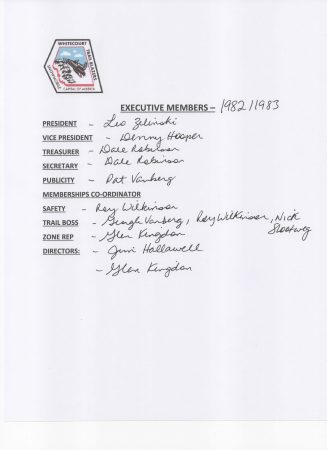 WHITECOURT
TRAIL BLAZERS
SNOWMOBILE
CAPITAL OF ALBERTA
EXECUTIVE MEMBERS – 1982/1983
PRESIDENT - Leo Zelinski
VICE PRESIDENT - Denny Hooper
TREASURER - Dale Robinson
SECRETARY - Dale Robinson
PUBLICITY - Pat Vanberg
MEMBERSHIPS CO-ORDINATOR
SAFETY - Ray Wilkinson
TRAIL BOSS - Vanberg, Ray Wilkinson, Nick
ZONE REP - Glen Kingdon
DIRECTORS: - Jim Hallawell
- Glen Kingdon